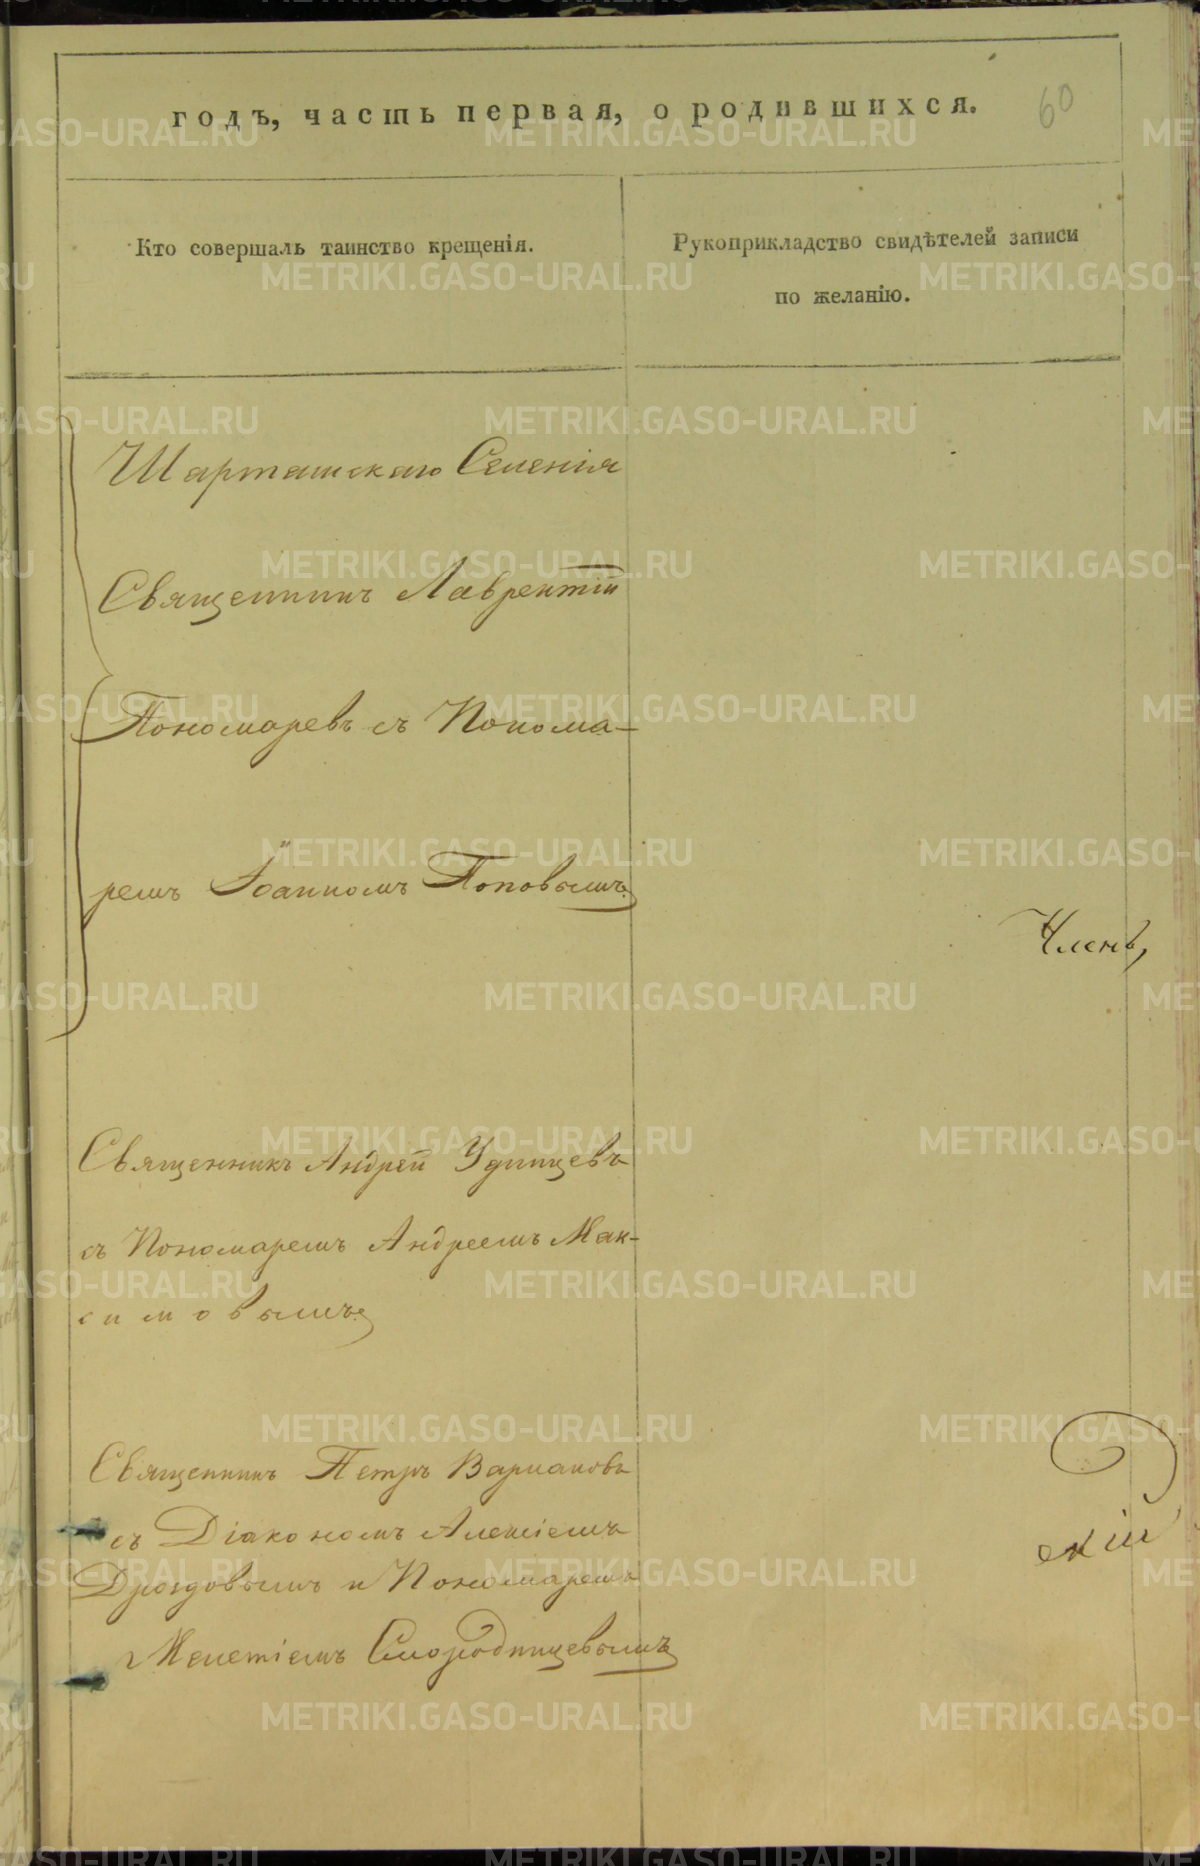 годъ, часть первая, о родившихся.
60
Кто совершалъ таинство крещенія.
Рукоприкладство свидѣтелей записи
по желанію.
Шарташскаго Селенія
Священникъ Лаврентій
Пономаревъ съ Понома-
ремъ Іоанномъ Поповымъ
Членъ,
Священникъ Андрей Удинцевъ
съ Пономаремъ Андреемъ Мак-
симовымъ
Священникъ Петръ
съ Діакономъ Алексіемъ
Дроздовымъ и Пономаремъ
Мелетіемъ Смородинцевымъ
скій
METRIKI.GASO-URAL.RU